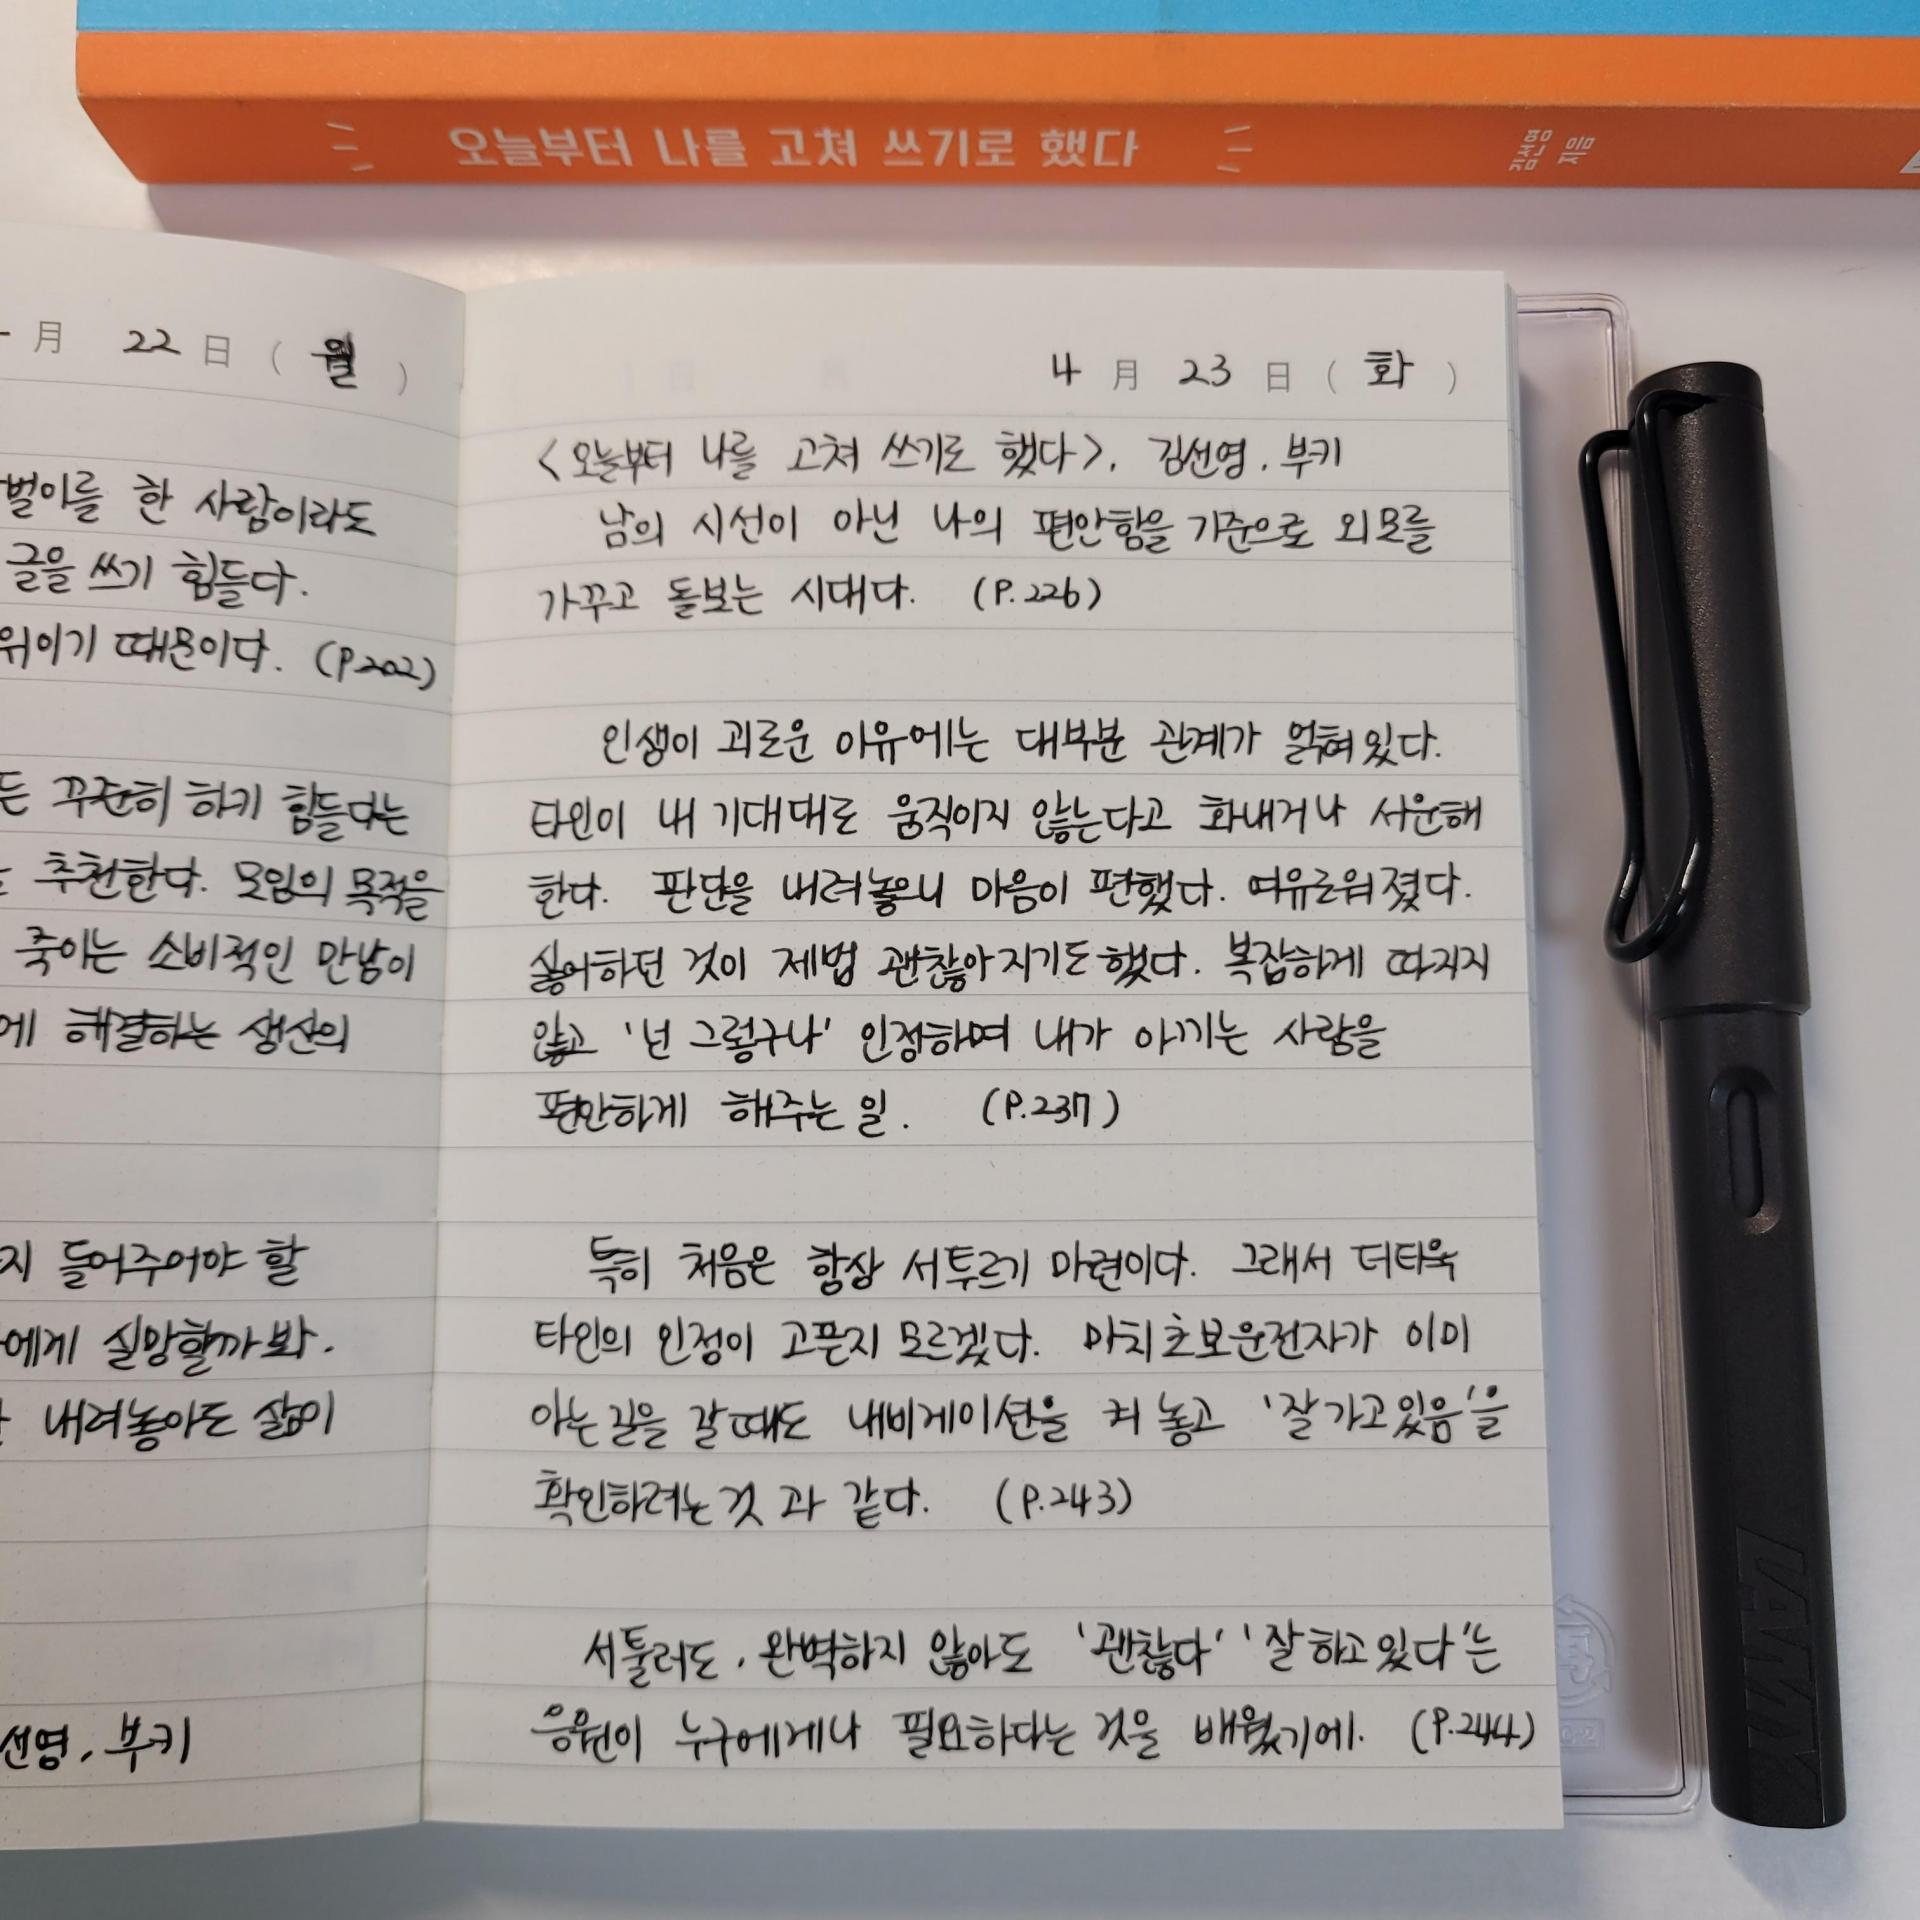 오늘부터 나를 고쳐 쓰기로 했다
김선영
지음
月 22 日 ( 월 )
벌이를 한 사람이라도
글을 쓰기 힘들다.
위이기 때문이다. (P.202)
든 꾸준히 하기 힘들다는
추천한다. 모임의 목적을
죽이는 소비적인 만남이
에 해결하는 생산의
지 들어주어야 할
에게 실망할까봐.
내려놓아도 삶이
선영, 부키
4 月 23 日 ( 화 )
<오늘부터 나를 고쳐 쓰기로 했다>, 김선영, 부키
남의 시선이 아닌 나의 편안함을 기준으로 외모를
가꾸고 돌보는 시대다. (P.226)
인생이 괴로운 이유에는 대부분 관계가 얽혀있다.
타인이 내 기대대로 움직이지 않는다고 화내거나 서운해
한다. 판단을 내려놓으니 마음이 편했다. 여유로워졌다.
싫어하던 것이 제법 괜찮아지기도 했다. 복잡하게 따지지
않고 '넌 그렇구나' 인정하며 내가 아끼는 사람을
편안하게 해주는 일. (P.237)
특히 처음은 항상 서투르기 마련이다. 그래서 더더욱
타인의 인정이 고픈지 모르겠다. 마치 초보운전자가 이미
아는 길을 갈 때도 내비게이션을 켜 놓고 '잘 가고 있음'을
확인하려는 것과 같다. (P.243)
서툴러도, 완벽하지 않아도 '괜찮다' '잘하고 있다'는
응원이 누구에게나 필요하다는 것을 배웠기에. (P.244)
LAMY